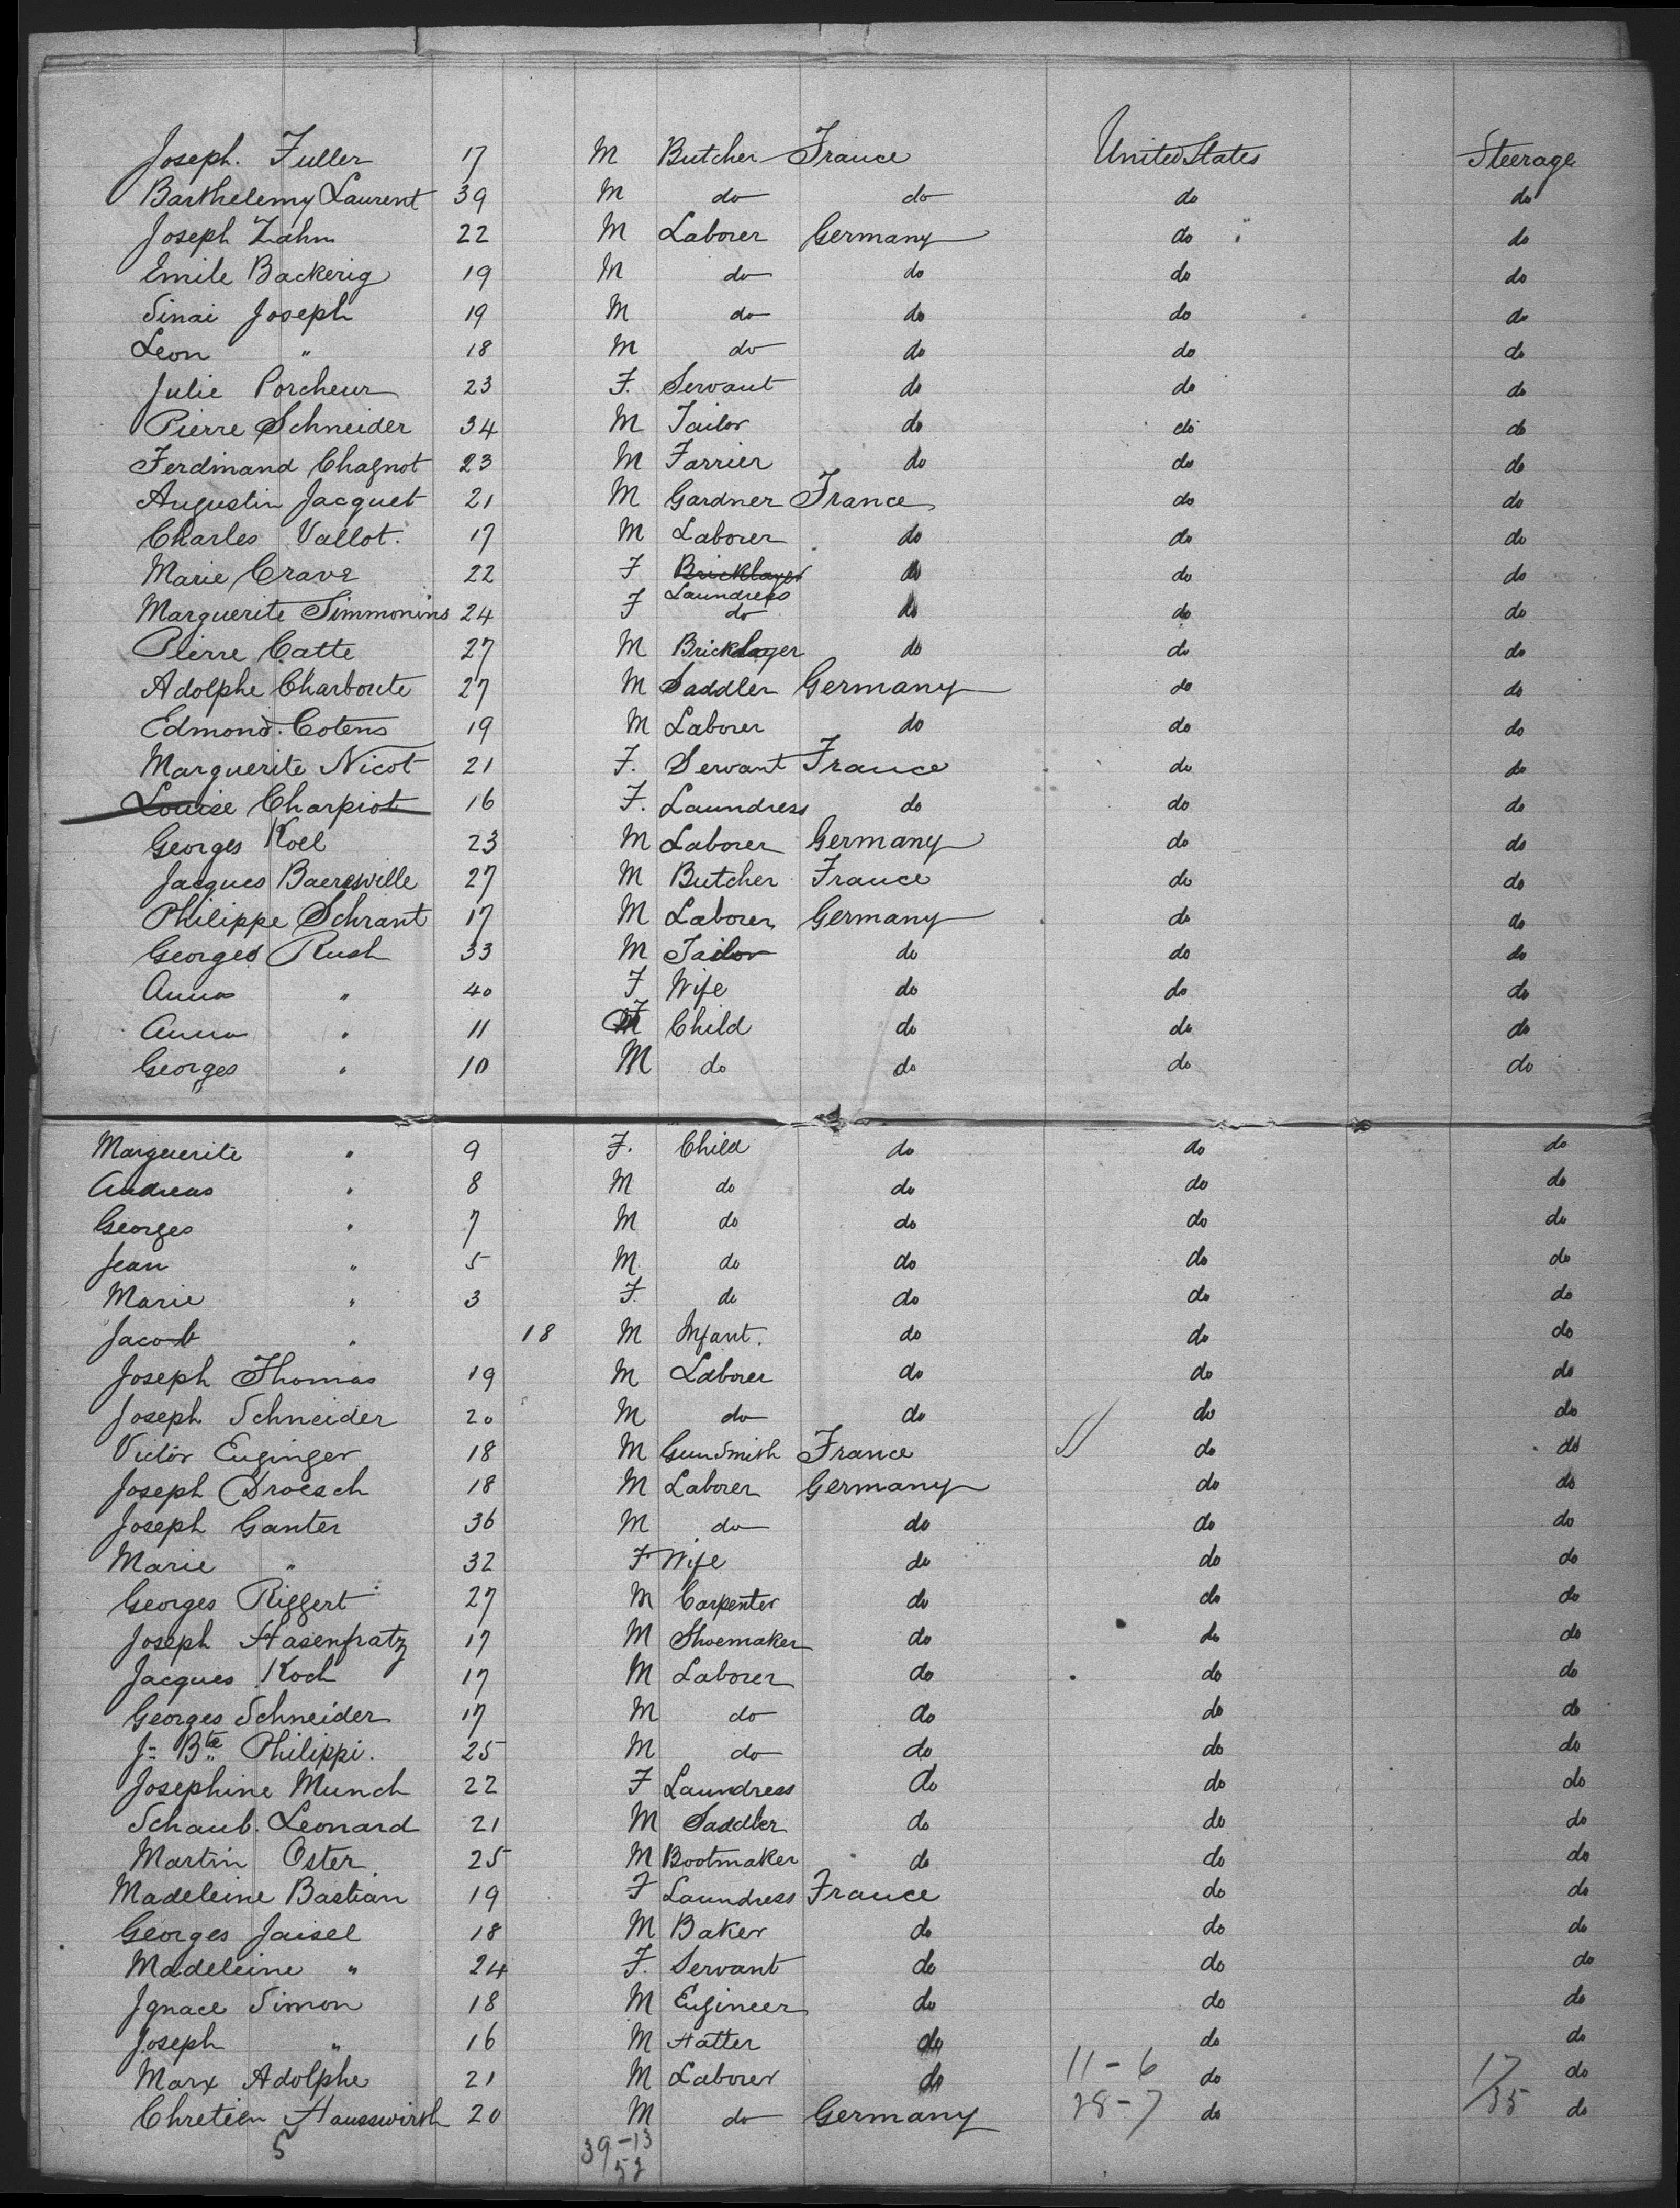 Joseph. Fuller 17 M Butcher France United States Steerage
Barthelemy Laurent 39 M do do do do
Joseph Zahn 22 M Laborer Germany do do
Emile Backerig 19 M do do do do
Sinai Joseph 19 M do do do do
Leon " 18 M do do do do
Julie Porcheur 23 F. Servant do do do
Pierre Schneider 34 M Tailor do do do
Ferdinand Chagnot 23 M Farrier do do do
Augustin Jacquet 21 M Gardner France do do
Charles Vallot. 17 M Laborer do do do
Marie Crave 22 F Bricklayer do do do
Laundress
Marguerite Simmonins 24 F do do do do
Pierre Catte 27 M Bricklayer do do do
Adolphe Charboute 27 M Saddler Germany do do
Edmond. Cotens 19 M Laborer do do do
Marguerite Nicot 21 F. Servant France do do
Louise Charpiot 16 F. Laundress do do do
Georges Koel 23 M Laborer Germany do do
Jacques Baereswille 27 M Butcher France do do
Philippe Schrant 17 M Laborer Germany do do
Georges Rush 33 M Tailor do do do
Anna " 40 F Wife do do do
Anna " 11 F Child do do do
Georges " 10 M do do do do
Marguerite " 9 F. Child do do do
Andreas " 8 M do do do do
Georges " 7 M do do do do
Jean " 5 M do do do do
Marie " 3 F. do do do do
Jacob " 18 M Infant. do do do
Joseph Thomas 19 M Laborer do do do
Joseph Schneider 20 M do do do do
Victor Euginger 18 M GunSmith France do do
Joseph Droesch 18 M Laborer Germany do do
Joseph Ganter 36 M do do do do
Marie " 32 F Wife do do do
Georges Riggert 27 M Carpenter do do do
Joseph Hasenfratz 17 M Shoemaker do do do
Jacques Koch 17 M Laborer do do do
Georges Schneider 17 M do do do do
Jn Bte Philippi. 25 M do do do do
Josephine Munch 22 F Laundress do do do
Schaub. Leonard 21 M Saddler do do do
Martin Oster. 25 M Bootmaker do do do
Madeleine Bastian 19 F Laundress France do do
Georges Jaisel 18 M Baker do do do
Madeleine " 24 F. Servant do do do
Ignace Simon 18 M Engineer do do do
Joseph " 16 M Hatter do do do
Marx Adolphe 21 M Laborer do 11-6 do 17 do
Chretien Hausswirth 20 M do Germany 28-7 do 35 do
5 39-13
52